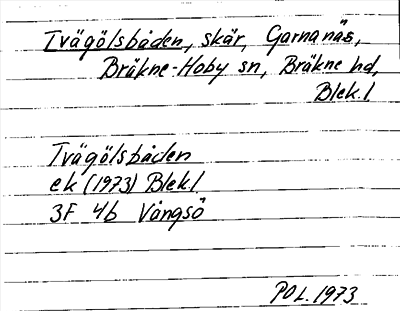 Tvägölsbåden, skär, Garnanäs,
Bräkne-Hoby sn, Bräkne hd,
Blek. l
Tvägölsbåden
ek (1973) Blek l.
3F 4b Vångsö
POL. 1973